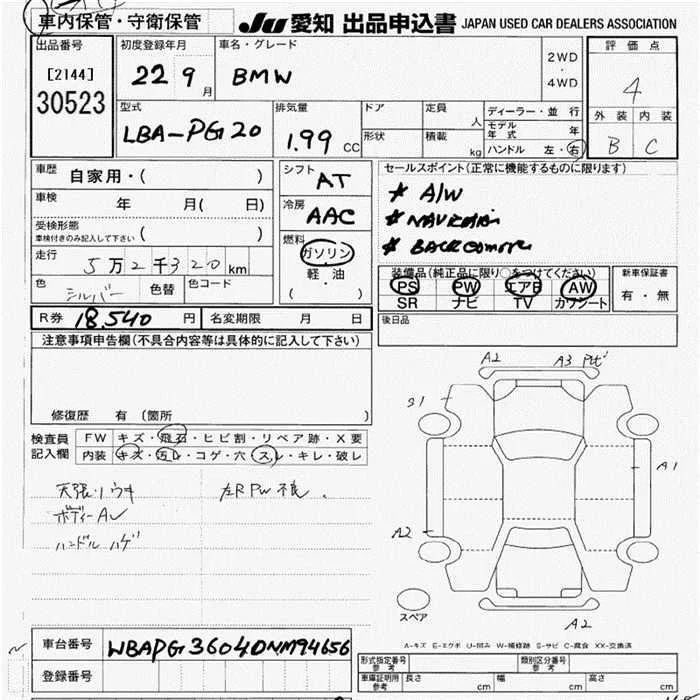 車内保管・守衛保管
Ju 愛知 出品申込書 JAPAN USED CAR DEALERS ASSOCIATION
出品番号
[2144]
30523
初度登録年月
22 9 月
車名・グレード
BMW
2WD
・
4WD
評価点
4
外装 内装
B C
型式
LBA-PG20
排気量
1.99 CC
ドア
形状
定員 人
積載 kg
ディーラー・並行
モデル年式 年
ハンドル 左・右
車歴
自家用・( )
車検 年 月( 日)
受検形態
車検付きのみ記入して下さい ( )
走行
5万2千320km
色 シルバー 色替 色コード
シフト
AT
冷房
AAC
燃料
ガソリン
・
軽油
( )
セールスポイント(正常に機能するものに限ります)
* A/W
* BACK
装備品(純正品に限り○をつけてください)
PS PW エアB AW
SR ナビ TV カワシート
新車保証書
有・無
R券 18.540 円 名変期限 月 日
後日品
注意事項申告欄(不具合内容等は具体的に記入して下さい)
修復歴 有 (箇所 )
検査員記入欄
FW キズ・飛石・ヒビ割・リペア跡・X要
内装 キズ・汚レ・コゲ・穴・スレ・キレ・破レ
天張リウキ
左R PW 不良.
ボディーAU
ハンドルハゲ
A2 A3
S1
A1
A2
スペア
A2
A-キズ E-エクボ U-凹み W-補修跡 S-サビ C-腐食 XX-交換済
車台番号
WBAPG36040NM94656
登録番号
形式指定番号 参考
類別区分番号 参考
車庫証明用 参考 長さ cm 幅 cm 高さ cm